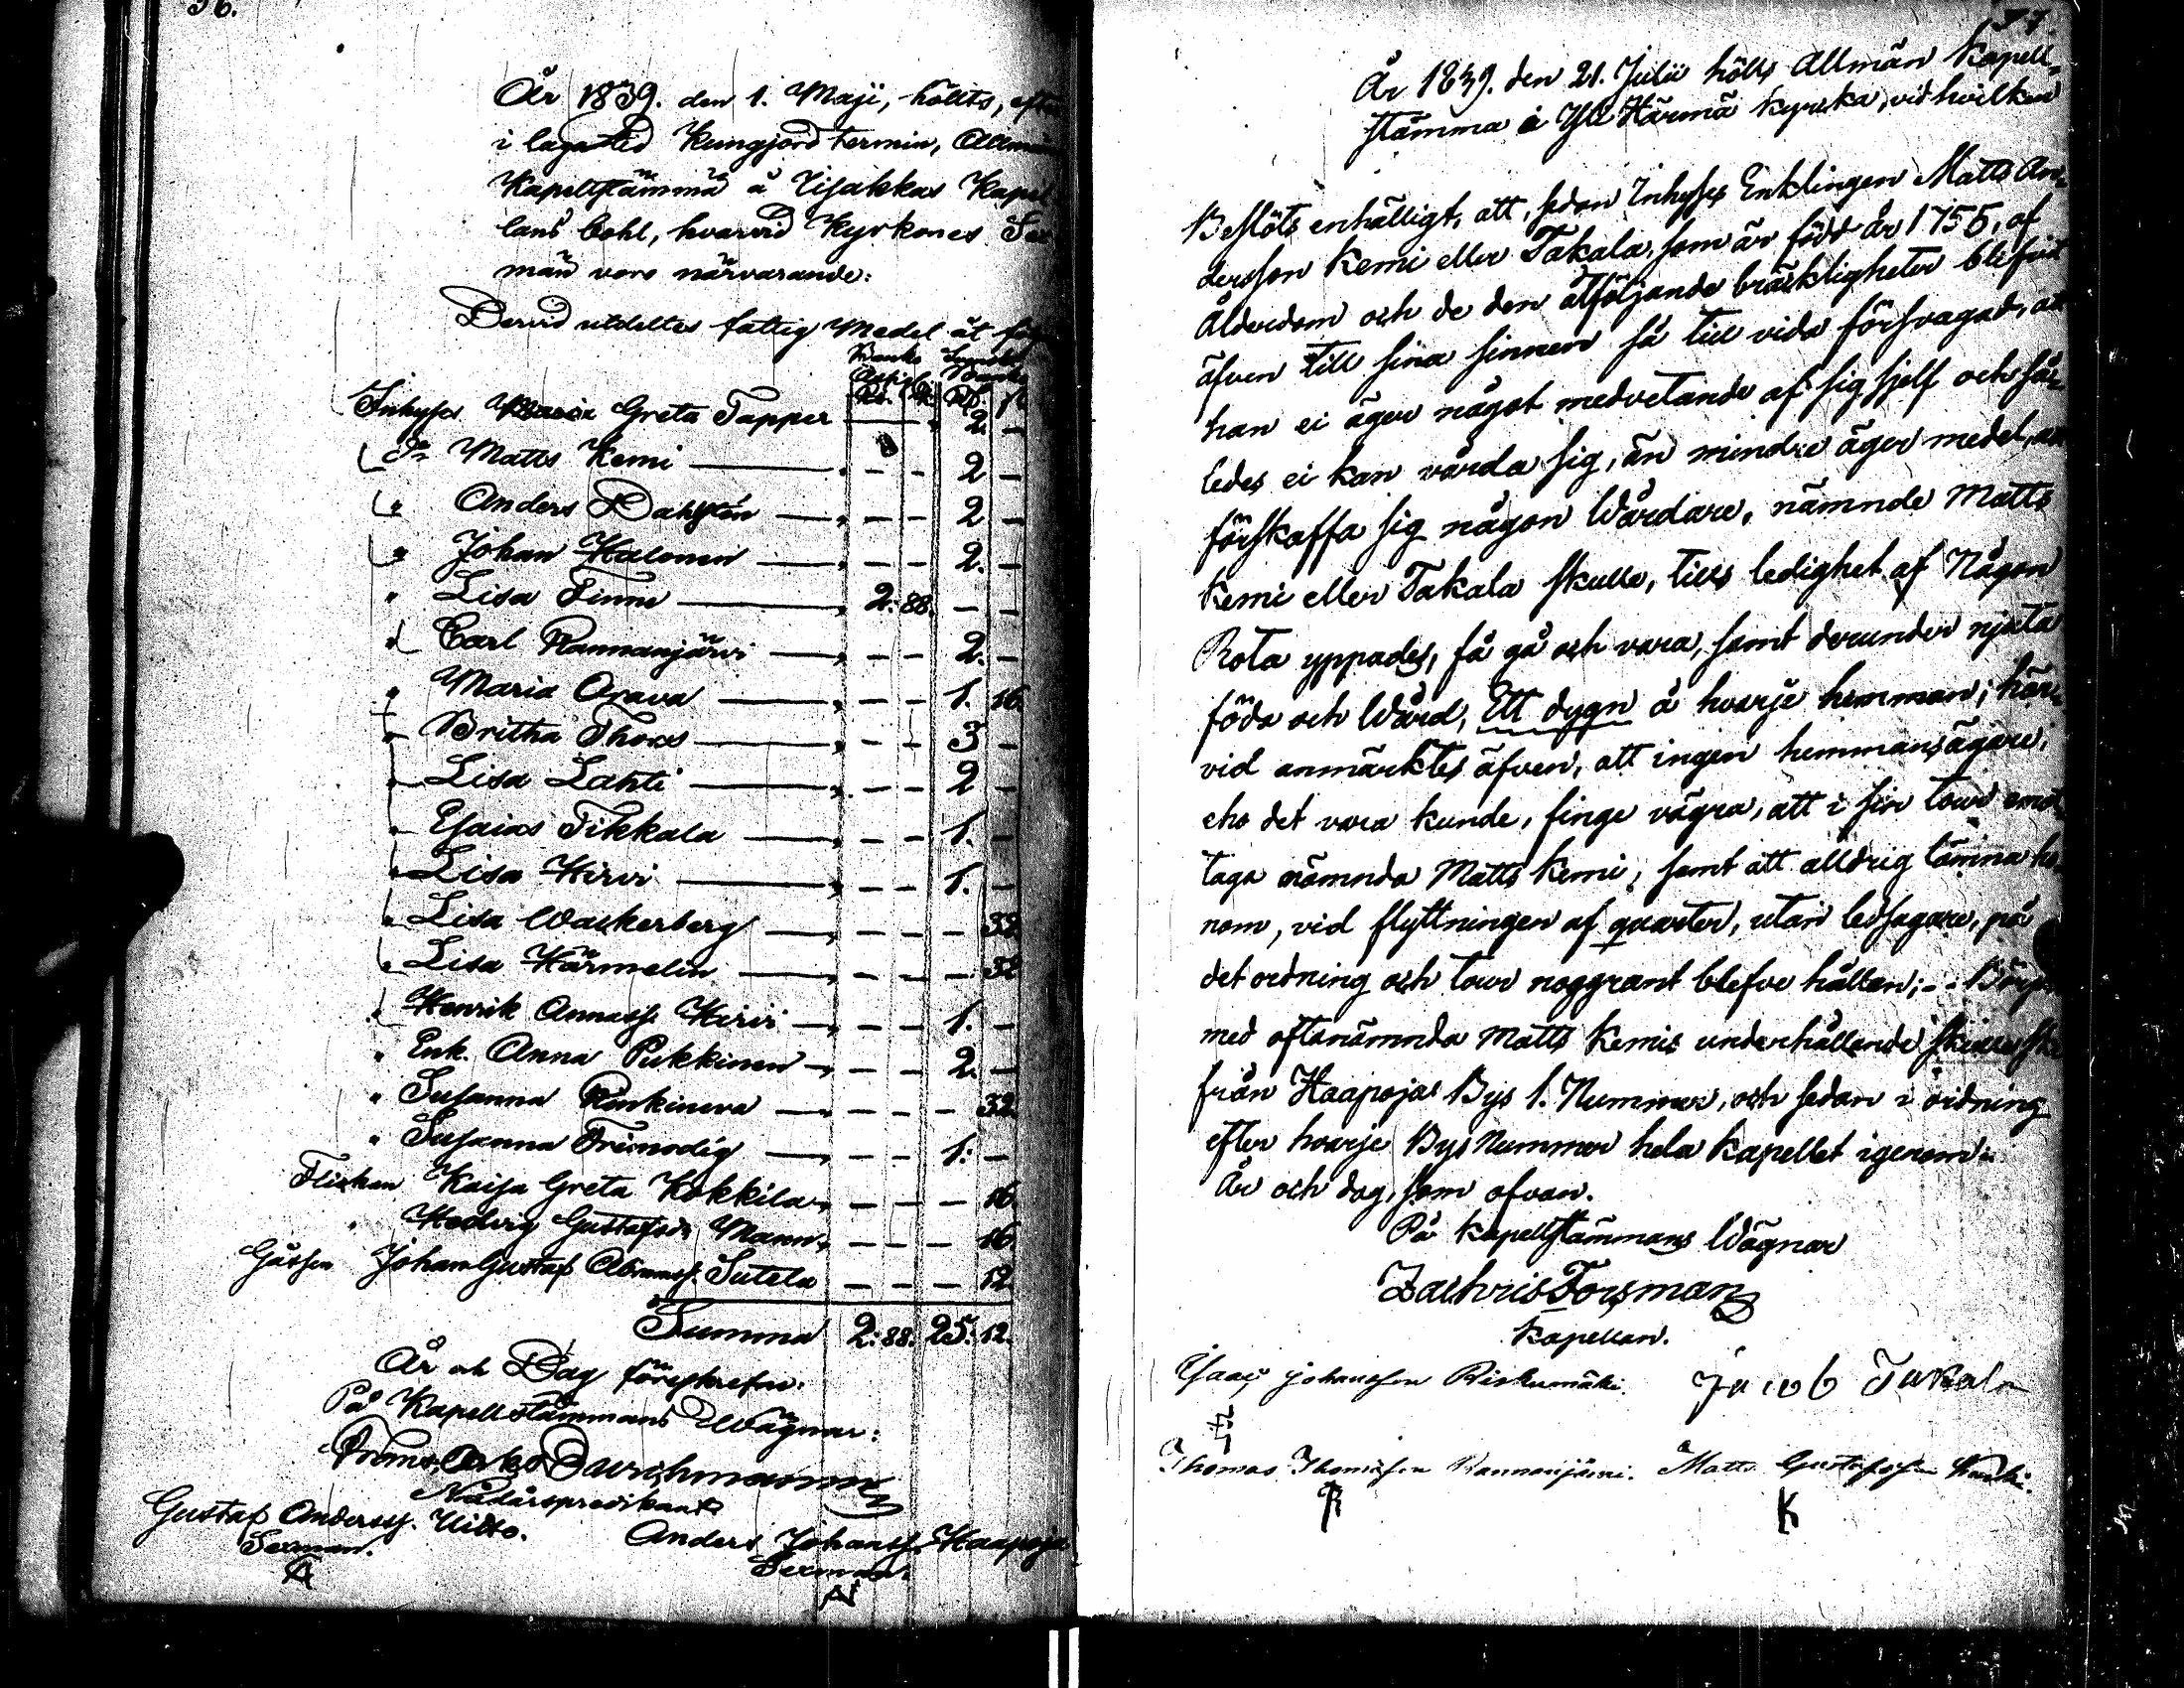 36.
År 1839. den 1. Maji, hölts, efter
i laga tid kungjord termin, Allmän
Kapellstämma å Lisakkas Kapel
lans bohl, hvarvid Kyrkones Sex
män voro närvarande:
Dervid utdeltes fattig Medel åt
Banko
Rb. K. Rd. sk
Inhyses Maria Greta Tapper — 2. —
Dn Matts Kemi — — — 2 —
" Anders Dahlsten — — — 2 —
" Johan Kalonen — — — 2. —
" Lisa Finne — 2. 88. — —
" Carl Rannanjärvi — — — 2. —
" Maria Orava — — — 1. 16.
" Britha Thors — — — 3 —
" Lisa Lahti — — — 2 —
" Esaias Tikkala — — — 1. —
" Lisa Hirvi — — — 1. —
" Lisa Wackerberg — — — — 32
" Lisa Härmelin — — — — 32
" Henrik Annass. Hirvi — — — 1. —
" Enk. Anna Pukkinen — — — 2. —
" Susanna Rankineva — — — — 32
" Susanna Frimodig — — — 1: —
Flickan Kaisa Greta Kokkila — — — 16.
" Hedvig Gustafsdr Mann — — — 16.
Gåssen Johan Gustaf Abramss. Sutela — — — 12
Summa 2: 88. 25: 12.
År och Dag föreskrefne.
På Kapellstämmans Wägnar:
Nådårspredikant
Gustaf Anderss. Uitto.
Sexman.
Anders Johanss. Haapoja
Sexman
37.
År 1839. den 21. Julii hölls Allmän Kapell-
stämma i Yli Härmä kyrka, vid hvilken
Beslöts enhälligt, att, sedan Inhyses Enklingen Matts An-
dersson Kemi eller Takala, som är född år 1755, af
Ålderdom och de den åtföljande bräckligheter blifvit
äfven till sina sinnen så till vida försvagad, att
han ei äger något medvetande af sig sjelf och så-
ledes ei kan vårda sig, än mindre äger medel, att
förskaffa sig någon Wårdare, nämnde Matts
Kemi eller Takala skulle, tills ledighet af Någon
Rota yppades, få gå och vara, samt derunder njuta
föda och Wård, Ett dygn å hvarje hemman; här-
vid anmärktes äfven, att ingen hemmansägare,
eho det vara kunde, finge vägra, att i sin tour emot
taga nämnda Matts Kemi, samt att alldrig lämna ho-
nom, vid flyttningen af quarter, utan ledsagare, på
det ordning och tour noggrant blefve hållen; - Början
med oftanämnda Matts Kemis underhållande skulle ske
från Haapojas Bys 1. Nummer, och sedan i ordning
efter hvarje Bys Nummer hela kapellet igenom.
År och dag, som ofvan.
På kapellstämmans Wägnar
Zachris Forsman
Kapellan.
Isaac Johansson Riskumäki. Jacob Takala
Thomas Thomasson Rannanjärvi. Matts Gustafsson
R K